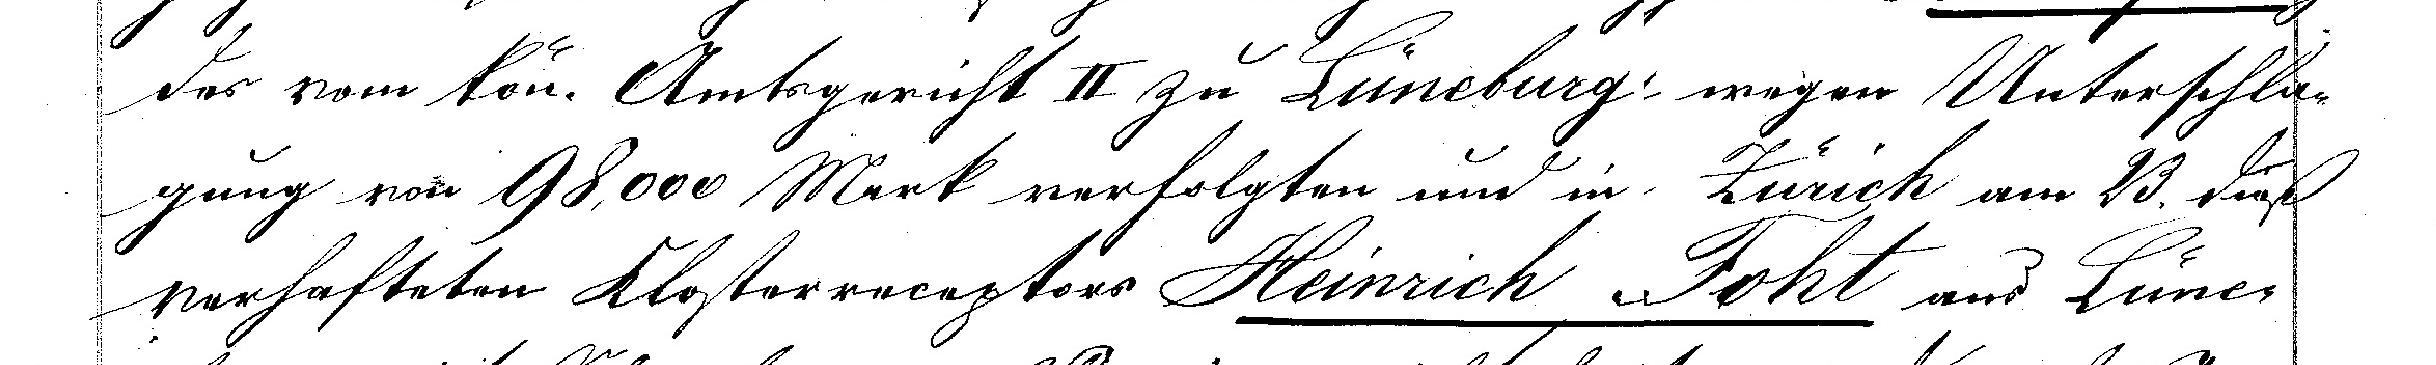 des vom kön. Amtsgericht II zu Lüneburg wegen Unterschla-
gung von 98,000 Mark verfolgten und in Zürich am 23. dieß
verhafteten Klosterreceptors Heinrich Foht aus Lüne-